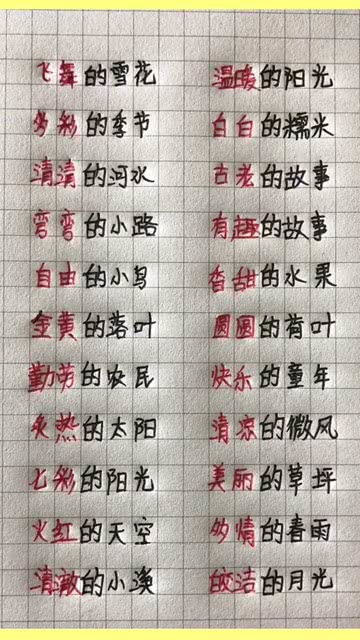 飞舞的雪花 温暖的阳光
多彩的季节 白白的糯米
清清的河水 古老的故事
弯弯的小路 有趣的故事
自由的小鸟 香甜的水果
金黄的落叶 圆圆的荷叶
勤劳的农民 快乐的童年
炙热的太阳 清凉的微风
七彩的阳光 美丽的草坪
火红的天空 多情的春雨
清澈的小溪 皎洁的月光